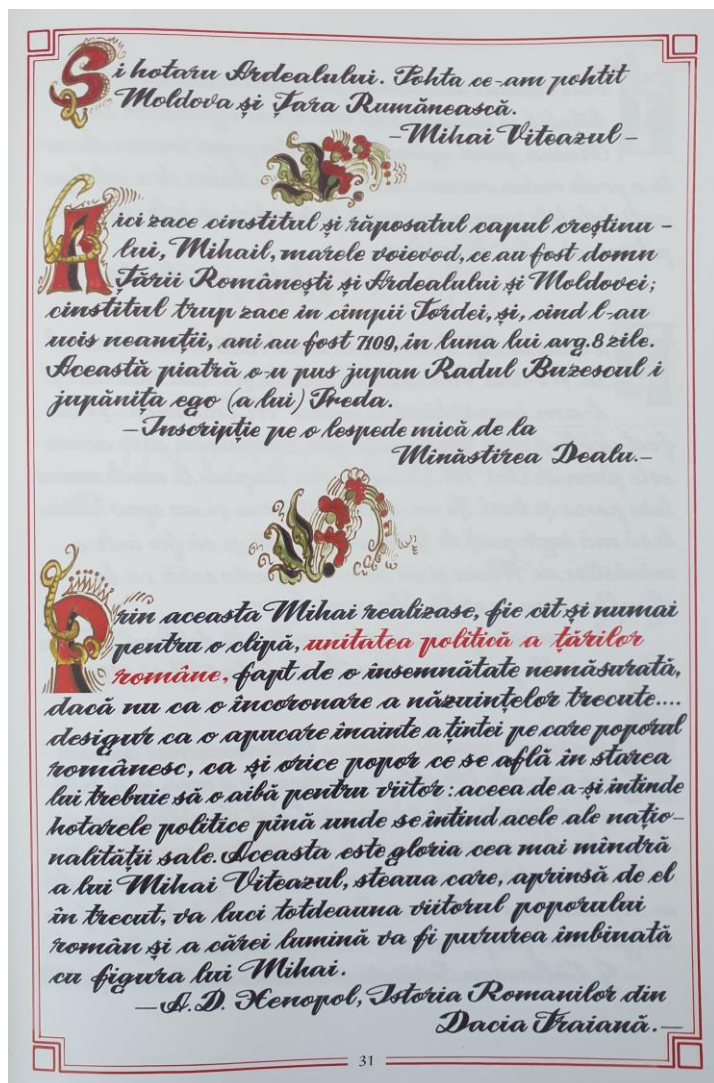 Si hotaru Ardealului. Pohta ce-am pohtit
Moldova și Țara Rumănească.
-Mihai Viteazul-
Aici zace cinstitul și răposatul capul creștinu-
lui, Mihail, marele voievod, ce au fost domn
Țării Românești și Ardealului și Moldovei;
cinstitul trup zace in cîmpii Tordei, și, cînd l-au
ucis neamții, ani au fost 7109, în luna lui avg. 8 zile.
Această piatră o-u pus jupan Radul Buzescul i
jupănița ego (a lui) Preda.
-Inscripție pe o lespede mică de la
Minăstirea Dealu.-
Prin aceasta Mihai realizase, fie cît și numai
pentru o clipă, unitatea politică a țărilor
române, fapt de o însemnătate nemăsurată,
dacă nu ca o încoronare a năzuințelor trecute....
desigur ca o apucare înainte a țintei pe care poporul
românesc, ca și orice popor ce se află în starea
lui trebuie să o aibă pentru viitor: aceea de a-și întinde
hotarele politice pînă unde se întind acele ale națio-
nalității sale. Aceasta este gloria cea mai mîndră
a lui Mihai Viteazul, steaua care, aprinsă de el
în trecut, va luci totdeauna viitorul poporului
român și a cărei lumină va fi pururea îmbinată
cu figura lui Mihai.
-A.D. Xenopol, Istoria Romanilor din
Dacia Traiană.-
31